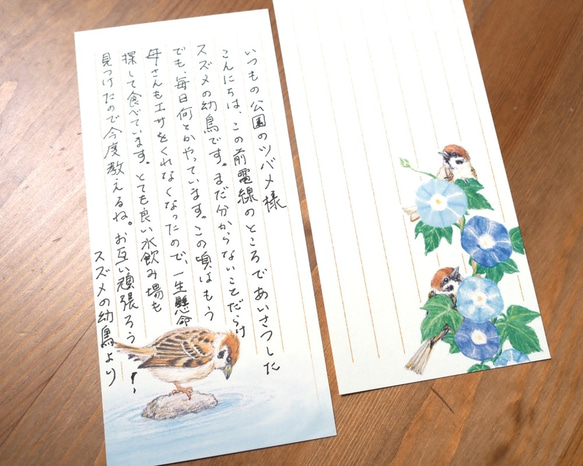 いつもの公園のツバメ様
こんにちは、この前電線のところであいさつした
スズメの幼鳥です。まだ分からないことだらけ
でも、毎日何とかやっています。この頃はもう
母さんもエサをくれなくなったので、一生懸命
探して食べています。とても良い水飲み場も
見つけたので今度教えるね。お互い頑張ろう!
スズメの幼鳥より